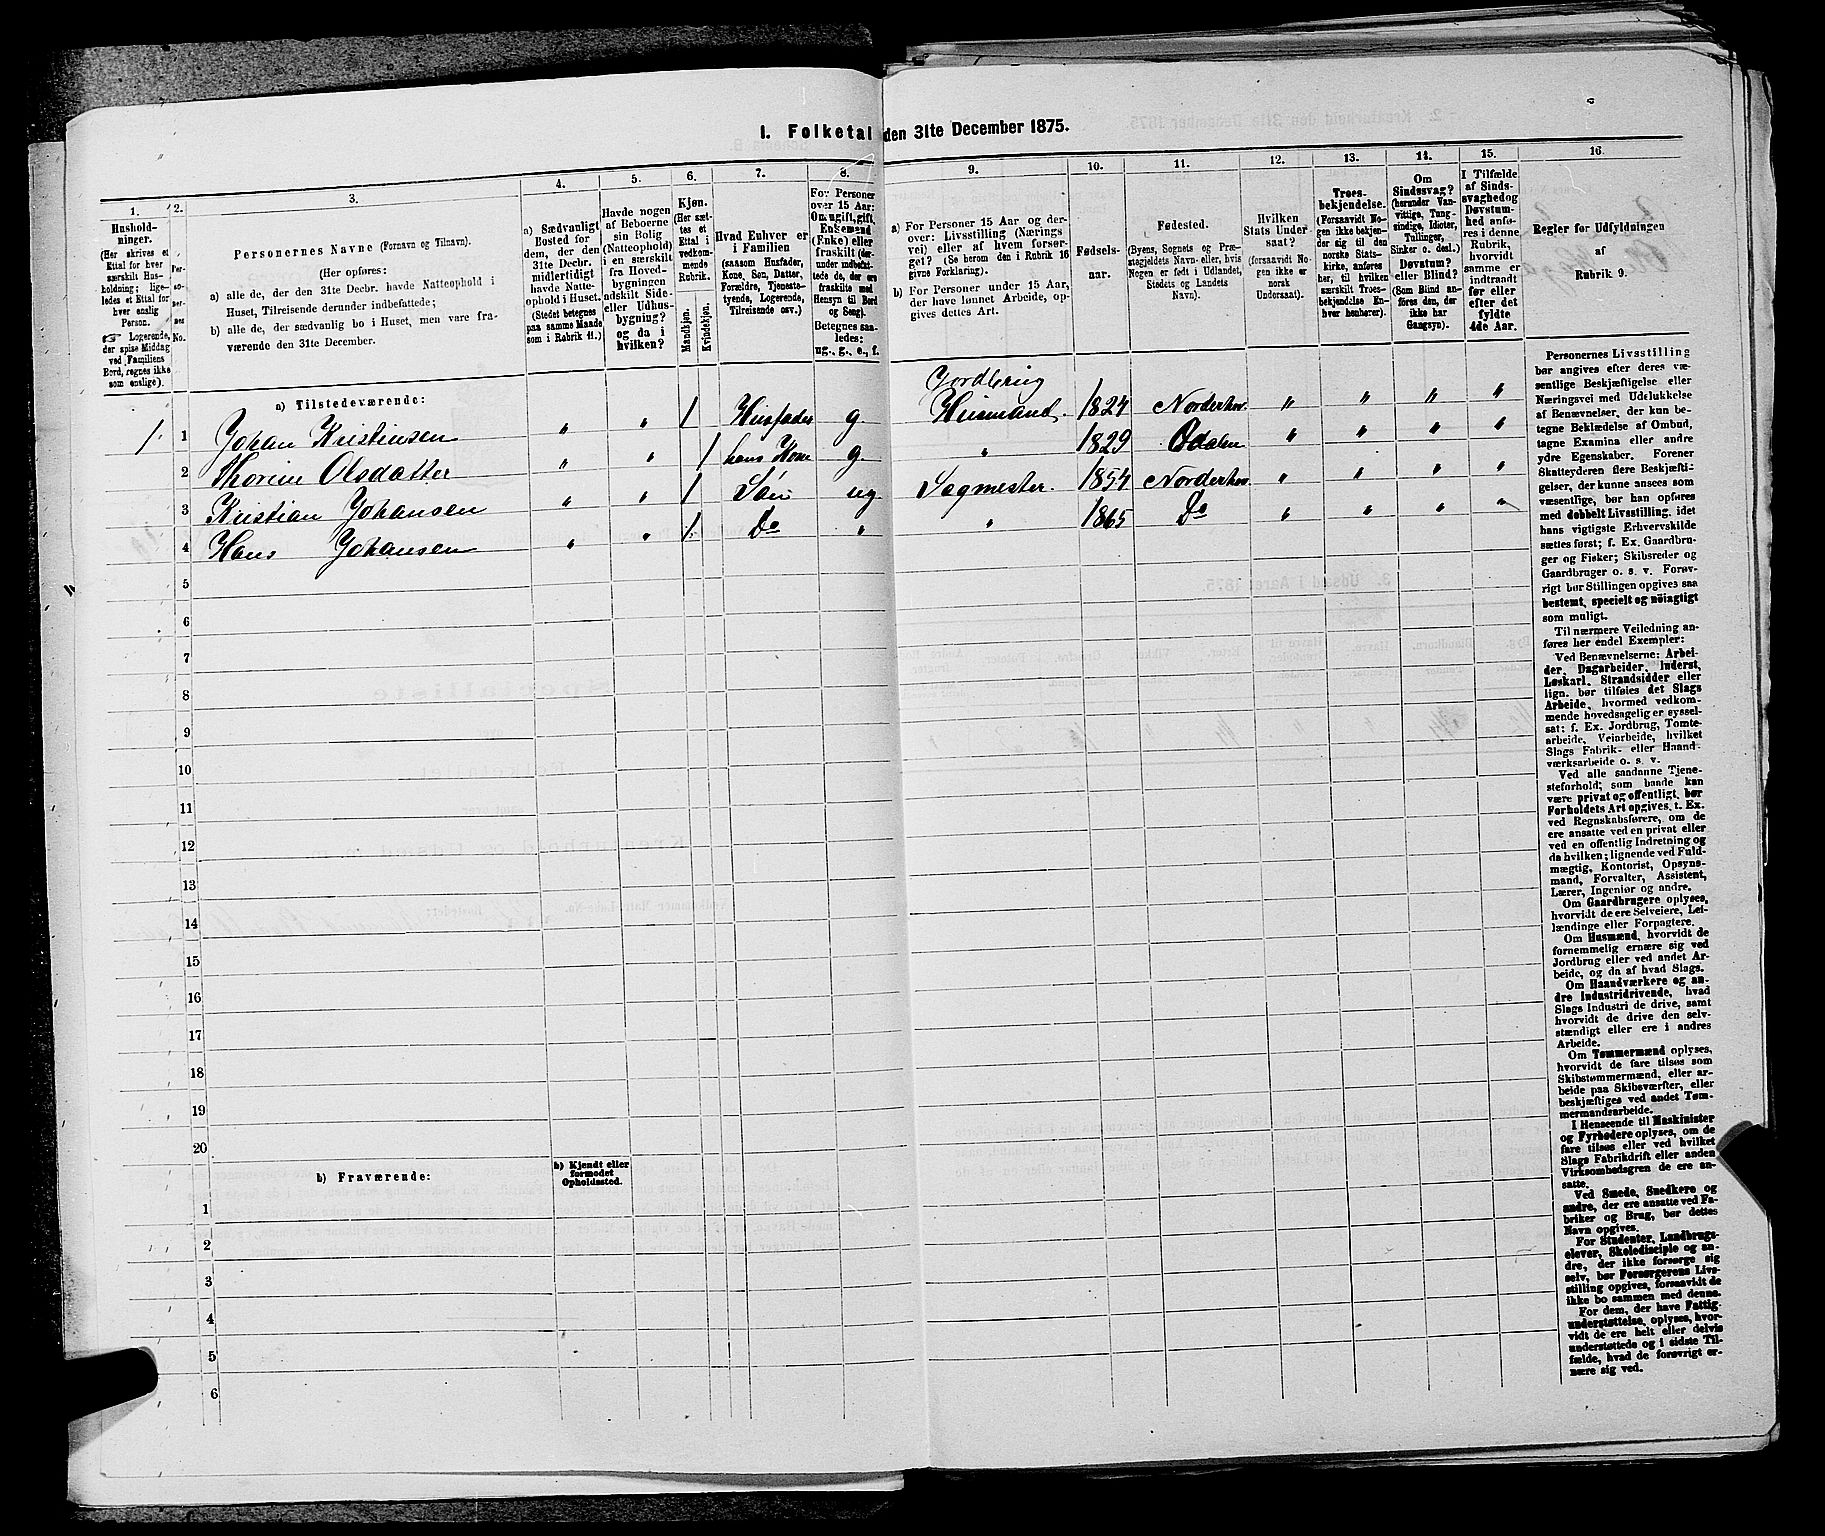 I. Folketal den 31te December 1875.
1.
Hushold-
ninger.
(Her skrives et
Ettal for hver
særskilt Hus-
holdning; lige-
ledes et Ettal for
hver enslig
Person.
☞ Logerende,
der spise Middag
ved Familiens
Bord, regnes ikke
som enslige).
2.
Personernes No.
3.
Personernes Navne (Fornavn og Tilnavn).
(Her opføres:
a) alle de, der den 31te Decbr. havde Natteophold i
Huset, Tilreisende derunder indbefattede;
b) alle de, der sædvanlig bo i Huset, men vare fra-
værende den 31te December.
4.
a) Sædvanligt
Bosted for
dem, der den
31te Decbr.
midlertidigt
havde Natte-
ophold i Huset.
(Stedet betegnes
paa samme Maade
som i Rubrik 11.)
5.
Havde nogen
af Beboerne
sin Bolig
(Natteophold)
i en særskilt
fra Hoved-
bygningen
adskilt Side-
eller Udhus-
bygning?
og da i
hvilken?
6.
Kjøn.
(Her sæt-
tes et
Ettal i
vedkom-
mende
Rubrik.
Mandkjøn.
Kvindekjøn.
7.
Hvad Enhver er
i Familien
(saasom Husfader,
Kone, Søn, Datter,
Forældre, Tjeneste-
tyende, Logerende,
Tilreisende osv.)
8.
For Personer
over 15 Aar:
Om ugift, gift,
Enkemand
(Enke) eller
fraskilt (der-
under indbefat-
tede de, der ere
fraskilte med
Hensyn til Bord
og Seng).
Betegnes saa-
ledes:
ug., g., e., f.
9.
a) For Personer 15 Aar og der-
over: Livsstilling (Nærings-
vei) eller af hvem forsør-
get? (Se herom den i Rubrik 16
givne Forklaring).
b) For Personer under 15 Aar,
der have lønnet Arbeide, op-
gives dettes Art.
10.
Fødsels-
aar.
11.
Fødested.
(Byens, Sognets og Præ-
stegjeldets Navn – eller, hvis
Nogen er født i Udlandet,
Stedets og Landets
Navn).
12.
Hvilken
Stats Under-
saat?
(forsaavidt No-
gen ikke er
norsk
Undersaat).
13.
Troes-
bekjendelse.
(Forsaavidt No-
gen ikke bekjen-
der sig til den
norske Stats-
kirke, anføres
her, til hvilken
særskilt Troes-
bekjendelse En-
hver henhører).
14.
Om
Sindssvag?
(herunder Van-
vittige, Tung-
sindige, Idioter,
Tullinger,
Sinker o. desl.)
Døvstum?
eller Blind?
(Som Blind an-
føres den, der
ikke har
Gangsyn).
15.
I Tilfælde
af Sinds-
svaghed og
Døvstum-
hed anfø-
res i denne
Rubrik,
hvorvidt
samme er
indtraadt
før eller
efter det
fyldte
4de Aar.
16.
Regler for Udfyldningen
af
Rubrik 9.
a) Tilstedeværende:
Jordbrug
1. 1 Johan Kristiansen " " 1 Husfader g Husmand. 1824 Norderhov. " " " "
2 Thorine Olsdatter " " 1 hans Kone g. " 1829 Odalen " " " "
3 Kristian Johansen " " 1 Søn ug Sagmester. 1854 Norderhov. " " " "
4 Hans Johansen " " 1. Do " " 1865 Do " " " "
5
6
7
8
9
10
11
12
13
14
15
16
17
18
19
20
b) Fraværende:
b) Kjendt eller
formodet
Opholdssted.
1
2
3
4
5
6
Personernes Livsstilling
bør angives efter deres væ-
sentlige Beskjæftigelse eller
Næringsvei med Udelukkelse
af Benævnelser, der kun be-
tegne Beklædelse af Ombud,
tagne Examina eller andre
ydre Egenskaber. Forener
Skatteyderen flere Beskjæfti-
gelser, der kunne ansees som
væsentlige, bør han opføres
med dobbelt Livsstilling, idet
hans vigtigste Erhvervskilde
sættes først; f. Ex. Gaardbru-
ger og Fisker; Skibsreder og
Gaardbruger o. s. v. Forøv-
rigt bør Stillingen opgives saa
bestemt, specielt og nøiagtigt
som muligt.
Til nærmere Veiledning an-
føres her endel Exempler:
Ved Benævnelserne: Arbei-
der, Dagarbeider, Inderst,
Løskarl, Strandsidder eller
lign. bør tilføies det Slags
Arbeide, hvormed vedkom-
mende hovedsagelig er syssel-
sat; f. Ex. Jordbrug, Tomte-
arbeide, Veiarbeide, hvilket
Slags Fabrik- eller Haand-
værksarbeide o. s. v.
Ved alle saadanne Tjene-
steforhold, som baade kan
være privat og offentligt, bør
Forholdets Art opgives, t. Ex.
ved Regnskabsførere, om de
ere ansatte ved en privat eller
ved en offentlig Indretning og
da hvilken; lignende ved Fuld-
mægtig, Kontorist, Opsyns-
mand, Forvalter, Assistent,
Lærer, Ingeniør og andre.
Om Gaardbrugere oplyses,
hvorvidt de ere Selveiere, Lei-
lændinge eller Forpagtere.
Om Husmænd, hvorvidt de
fornemmelig ernære sig ved
Jordbrug eller ved andet Ar-
beide, og da af hvad Slags.
Om Haandværkere og an-
dre Industridrivende, hvad
Slags Industri de drive, samt
hvorvidt de drive den selv-
stændigt eller ere i andres
Arbeide.
Om Tømmermænd oplyses,
hvorvidt de fare tilsøs som
Skibstømmermænd, eller ar-
beide paa Skibsværfter, eller
beskjæftiges ved andet Tøm-
mermandsarbeide.
I Henseende til Maskinister
og Fyrbødere oplyses, om de
fare tilsøs eller ved hvilket
Slags Fabrikdrift eller anden
Virksomhedsgren de ere an-
satte.
Ved Smede, Snedkere og
andre, der ere ansatte ved Fa-
briker og Brug, bør dettes
Navn opgives.
For Studenter, Landbrugs-
elever, Skoledisciple og an-
dre, der ikke forsørge sig
selv, bør Forsørgerens Livs-
stilling opgives, forsaavidt de
ikke bo sammen med denne.
For dem, der have Fattig-
understøttelse, oplyses, hvor-
vidt de ere helt eller delvis
understøttede og i sidste Til-
fælde, hvad de forøvrigt er-
nære sig ved.